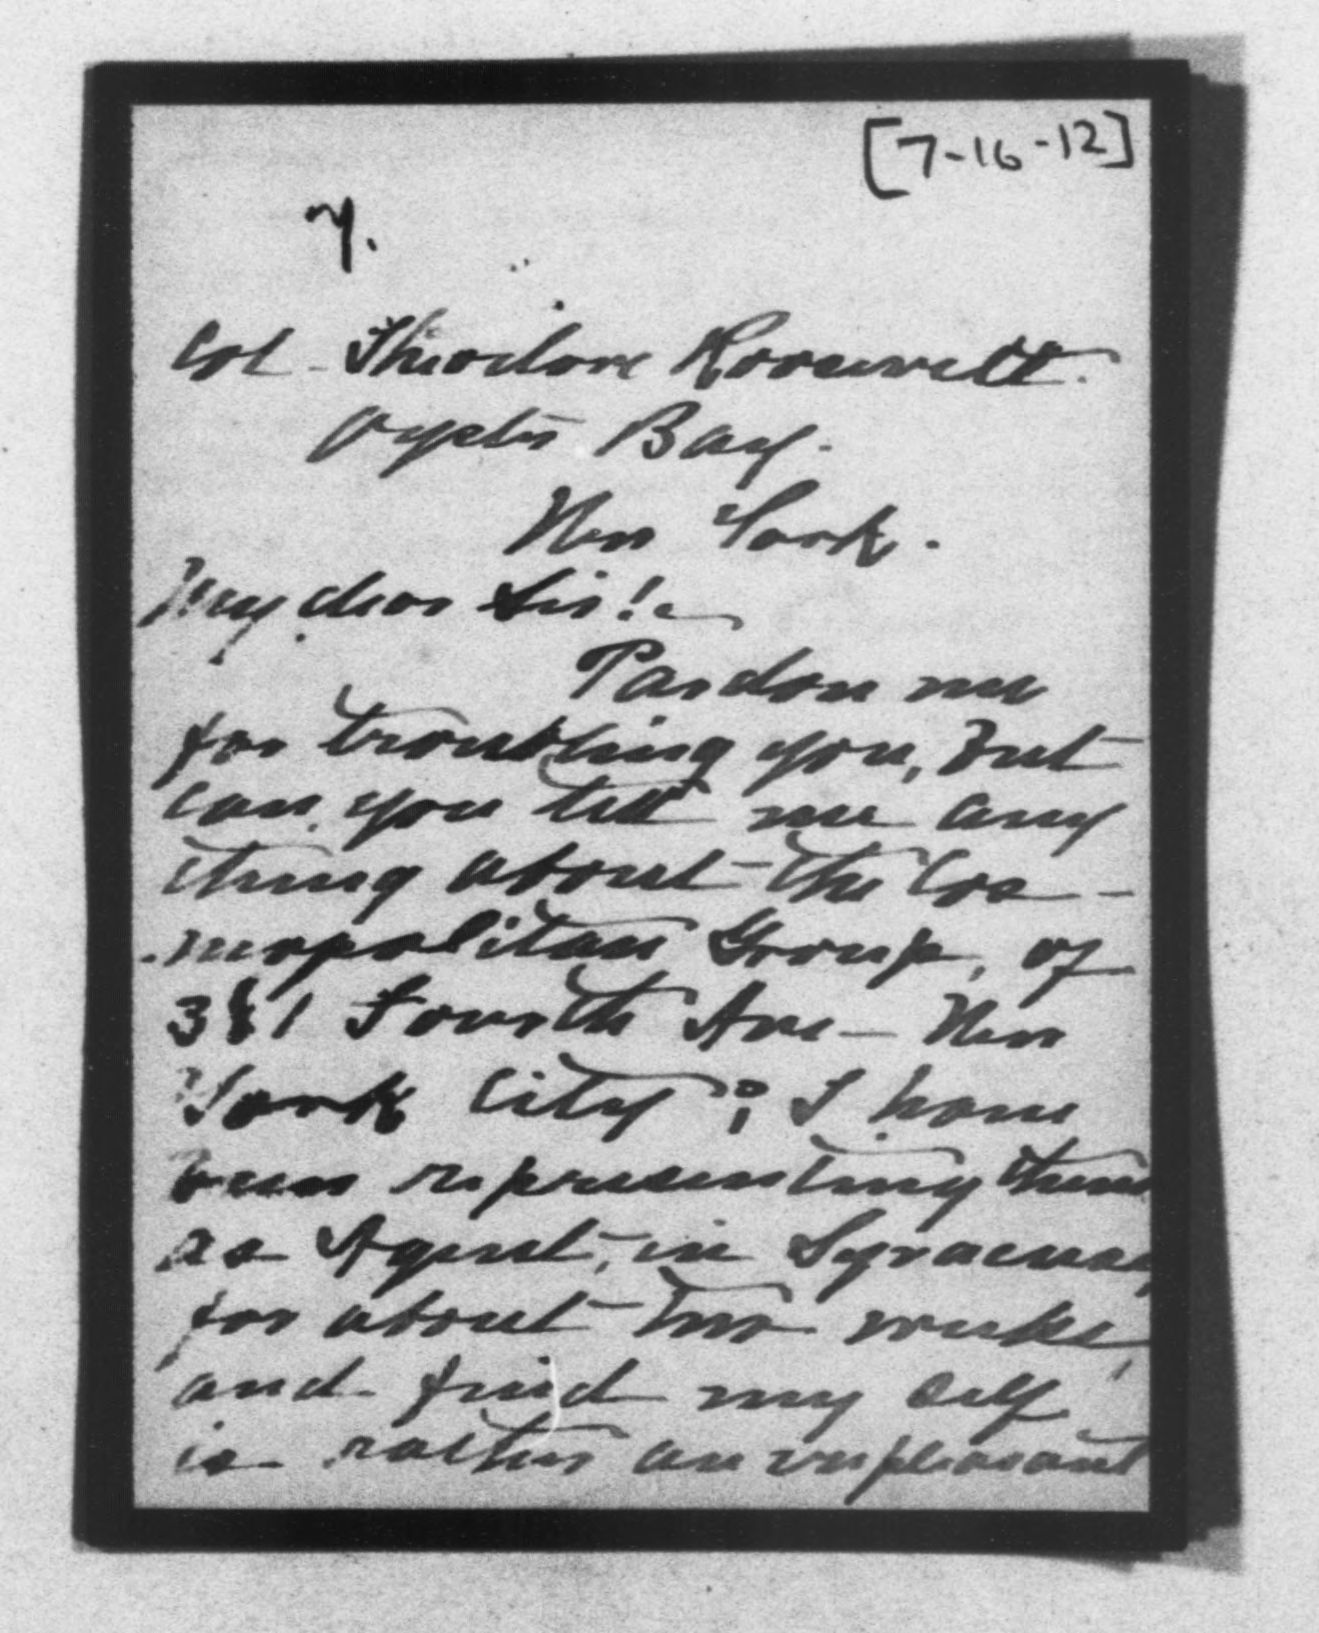 [7-16-12]
Y.
Col. Theodore Roosevelt.
Oyster Bay.
New York.
My dear Sir!
Pardon me
for troubling you, but
can you tell me any
thing about the Cos-
mopolitan Group, of
381 Fourth Ave - New
York City; I have
been representing them
as Agent, in Syracuse,
for about two weeks,
and find my self
is rather an unpleasant